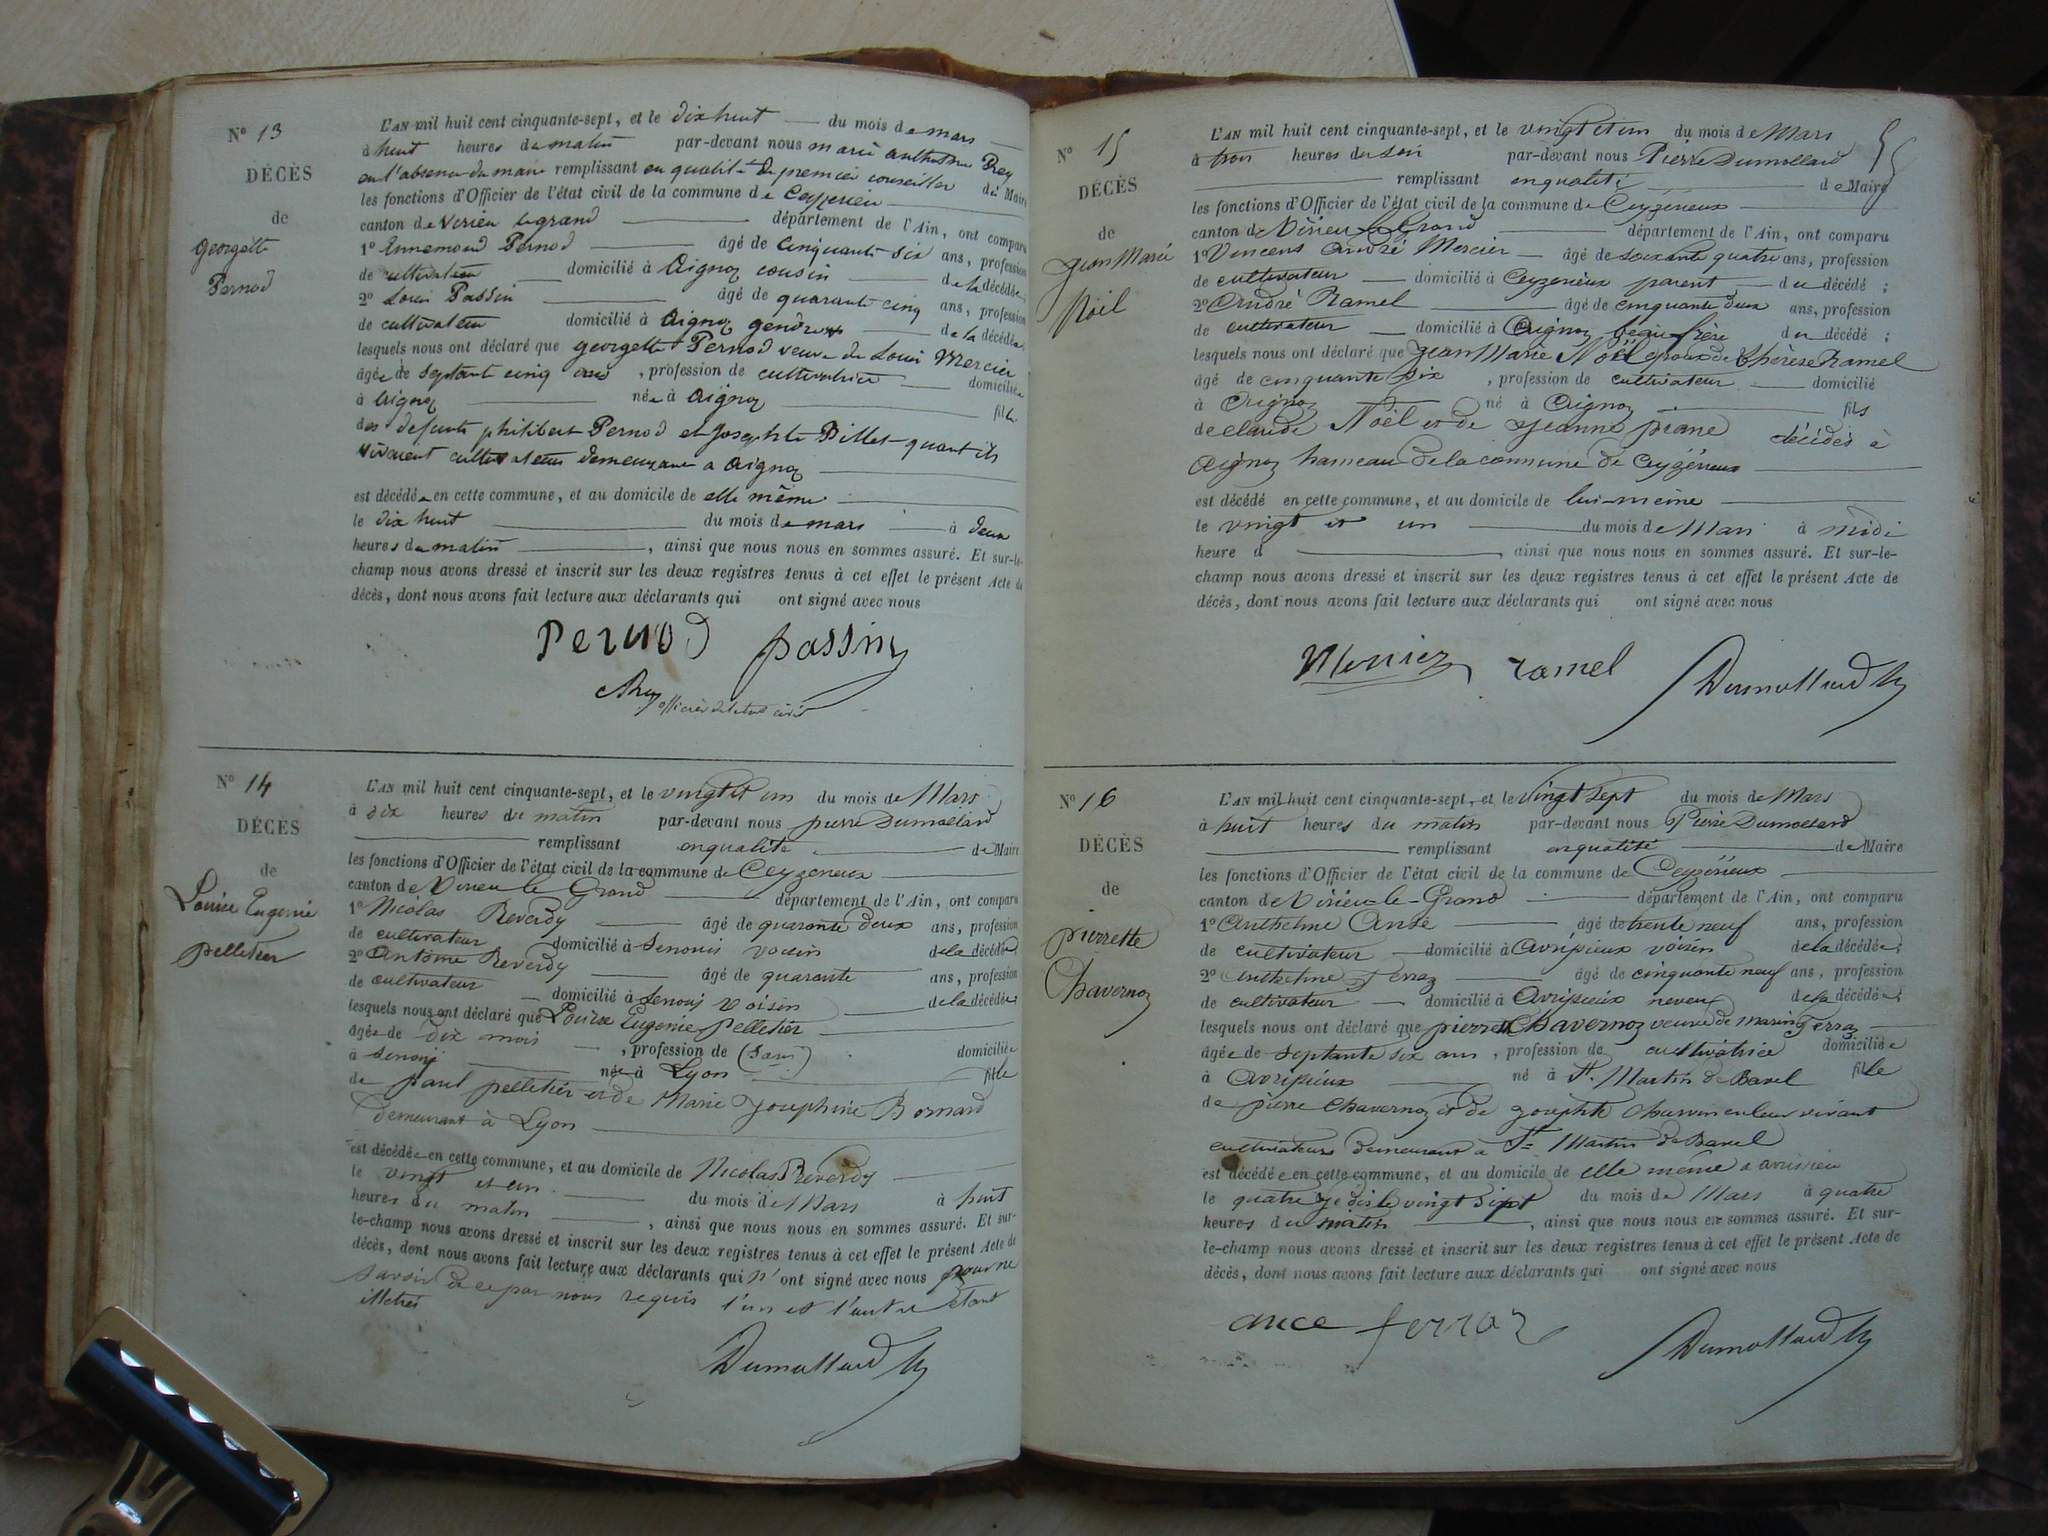 N° 13
DÉCÈS
de
georgette
Pernod
L'AN mil huit cent cinquante-sept, et le dix huit du mois de mars
à huit heures du matin par-devant nous marie anthelme Prey
en l'absence du maire remplissant en qualité de premier conseiller de Maire
les fonctions d'Officier de l'état civil de la commune de Ceyzerieu
canton de Virieu legrand département de l'Ain, ont comparu
1° Ennemond Pernod âgé de cinquante six ans, profession
de cultivateur domicilié à Aignoz cousin de la décédée;
2° Louis Passin âgé de quarante cinq ans, profession
de cultivateur domicilié à Aignoz gendre de la décédée;
lesquels nous ont déclaré que georgette Pernod veuve de Louis Mercier
âgée de septante cinq ans, profession de cultivatrice domiciliée
à aignoz née à Aignoz fille
des defunts philibert Pernod et josephte Billet quant ils
vivoient cultivateurs demeurant a aignoz
est décédée en cette commune, et au domicile de elle même
le dix huit du mois de mars à deux
heures du matin, ainsi que nous nous en sommes assuré. Et sur-le-
champ nous avons dressé et inscrit sur les deux registres tenus à cet effet le présent Acte de
décès, dont nous avons fait lecture aux déclarants qui ont signé avec nous
Pernod passin
Prey officier de l'etat civil
N° 14
DÉCÈS
de
Louise Eugenie
pelletier
L'AN mil huit cent cinquante-sept, et le vingt et un du mois de Mars
à dix heures du matin par-devant nous pierre Dumollard
remplissant en qualité de Maire
les fonctions d'Officier de l'état civil de la commune de Ceyzerieux
canton de Virieu le Grand département de l'Ain, ont comparu
1° Nicolas Reverdy âgé de quarante deux ans, profession
de cultivateur domicilié à Senoui voisin de la décédée;
2° Antoine Reverdy âgé de quarante ans, profession
de cultivateur domicilié à Senoui voisin de la décédée;
lesquels nous ont déclaré que Louise Eugenie pelletier
âgée de dix mois, profession de (sans) domiciliée
à Senoui née à Lyon fille
de paul pelletier et de Marie Josephine Bornard
demeurant à Lyon
est décédée en cette commune, et au domicile de Nicolas Reverdy
le vingt et un du mois de Mars à huit
heures du matin, ainsi que nous nous en sommes assuré. Et sur-
le-champ nous avons dressé et inscrit sur les deux registres tenus à cet effet le présent Acte de
décès, dont nous avons fait lecture aux déclarants qui n'ont signé avec nous pour ne
savoir de ce par nous requis l'un et l'autre étant
illetrés
Dumollard
N° 15
DÉCÈS
de
Jean Marie
Noël
55
L'AN mil huit cent cinquante-sept, et le vingt et un du mois de Mars
à trois heures du soir par-devant nous Pierre Dumollard
remplissant en qualité de Maire
les fonctions d'Officier de l'état civil de la commune de Ceyzérieux
canton de Virieu le Grand département de l'Ain, ont comparu
1° Vincent André Mercier âgé de soixante quatre ans, profession
de cultivateur domicilié à Ceyzérieux parent du décédé;
2° André Ramel âgé de cinquante deux ans, profession
de cultivateur domicilié à Aignoz beau frère du décédé;
lesquels nous ont déclaré que Jean Marie Noël epoux de Thérèse Ramel
âgé de cinquante six, profession de cultivateur domicilié
à Aignoz né à Aignoz fils
de claude Noël et de Jeanne piane décédés à
Aignoz hameau de la commune de Ceyzérieux
est décédé en cette commune, et au domicile de lui-même
le vingt et un du mois de Mars à midi
heure d, ainsi que nous nous en sommes assuré. Et sur-le-
champ nous avons dressé et inscrit sur les deux registres tenus à cet effet le présent Acte de
décès, dont nous avons fait lecture aux déclarants qui ont signé avec nous
Mercier ramel Dumollard
N° 16
DÉCÈS
de
pierrette
Chavernoz
L'AN mil huit cent cinquante-sept, et le vingt sept du mois de Mars
à huit heures du matin par-devant nous Pierre Dumollard
remplissant en qualité de Maire
les fonctions d'Officier de l'état civil de la commune de Ceyzérieux
canton de Virieu-le-Grand département de l'Ain, ont comparu
1° Anthelme Ansé âgé de trente neuf ans, profession
de cultivateur domicilié à Avrisieux voisin de la décédée;
2° Anthelme Ferraz âgé de cinquante neuf ans, profession
de cultivateur domicilié à Avrisieux neveu de la décédée;
lesquels nous ont déclaré que pierrette Chavernoz veuve de marin Ferraz
âgée de septante six ans, profession de cultivatrice domiciliée
à Avrisieux né à St. Martin de Bavel fille
de pierre Chavernoz et de josephte Charvin en leur vivant
cultivateurs demeurant à St Martin de Bavel
est décédée en cette commune, et au domicile de elle même a avrisieu
le quatre je dis le vingt sept du mois de Mars à quatre
heures du matin, ainsi que nous nous en sommes assuré. Et sur-
le-champ nous avons dressé et inscrit sur les deux registres tenus à cet effet le présent Acte de
décès, dont nous avons fait lecture aux déclarants qui ont signé avec nous
ance ferraz Dumollard